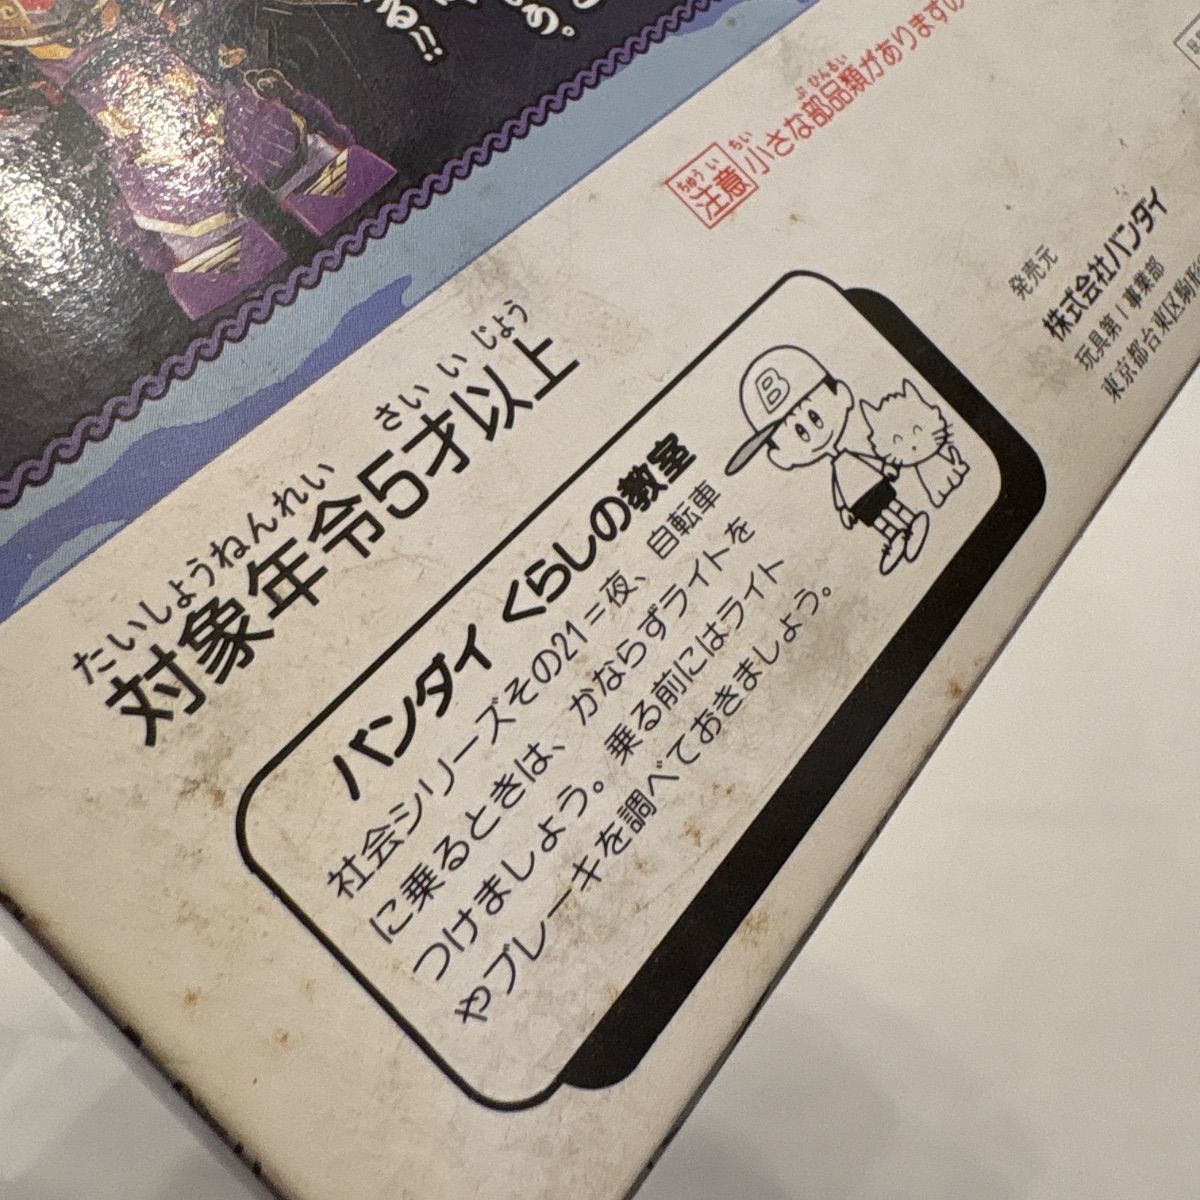 る!!
う。
注意 小さな部品類がありますの
ちゅうい ちい ぶひんるい
発売元
株式会社バンダイ
玩具第1事業部
東京都台東区駒形
たいしょうねんれい さい いじょう
対象年令5才以上
B
バンダイ くらしの教室
社会シリーズその21=夜、自転車
に乗るときは、かならずライトを
つけましょう。乗る前にはライト
やブレーキを調べておきましょう。